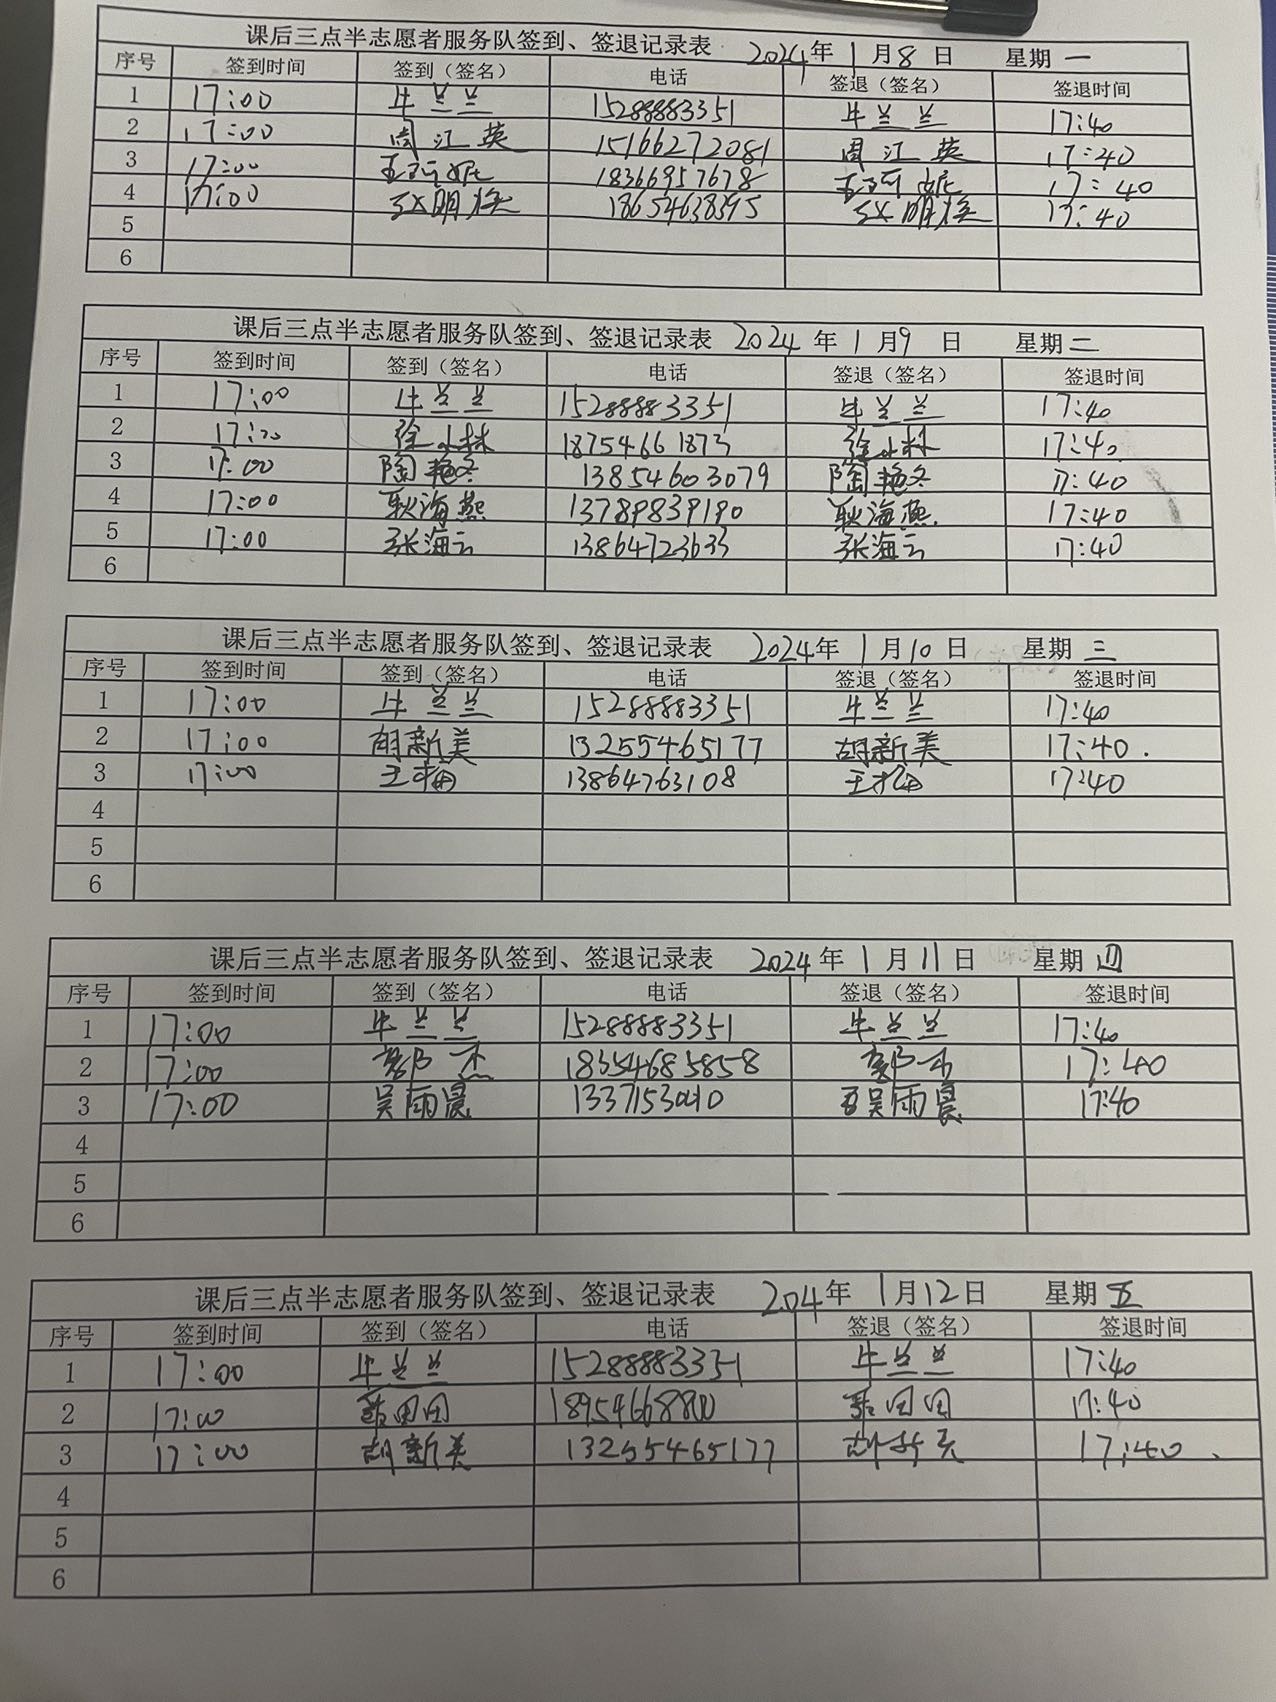 课后三点半志愿者服务队签到、签退记录表 2024年 1月8日 星期一
序号 签到时间 签到（签名） 电话 签退（签名） 签退时间
1 17:00 牛兰兰 15288883351 牛兰兰 17:40
2 17:00 周江英 15166272081 周江英 17:40
3 17:00 18366957678 17:40
4 17:00 赵明焕 18654638395 赵明焕 17:40
5
6
课后三点半志愿者服务队签到、签退记录表 2024年1月9日 星期二
序号 签到时间 签到（签名） 电话 签退（签名） 签退时间
1 17:00 牛兰兰 15288883351 牛兰兰 17:40
2 徐小林 18754661873 徐小林 17:40
3 17:00 陶艳冬 13854603079 陶艳冬 17:40
4 17:00 耿海燕 13789839190 耿海燕 17:40
5 17:00 张海云 13864723633 张海云 17:40
6
课后三点半志愿者服务队签到、签退记录表 2024年1月10日 星期三
序号 签到时间 签到（签名） 电话 签退（签名） 签退时间
1 17:00 牛兰兰 15288883351 牛兰兰 17:40
2 17:00 胡新美 13255465177 胡新美 17:40
3 17:00 王梅 13864763108 王梅 17:40
4
5
6
课后三点半志愿者服务队签到、签退记录表 2024年1月11日 星期四
序号 签到时间 签到（签名） 电话 签退（签名） 签退时间
1 17:00 牛兰兰 15288883351 牛兰兰 17:40
2 17:00 郭杰 18354685858 郭杰 17:40
3 17:00 吴雨晨 吴雨晨 17:40
4
5
6
课后三点半志愿者服务队签到、签退记录表 2024年1月12日 星期五
序号 签到时间 签到（签名） 电话 签退（签名） 签退时间
1 17:00 牛兰兰 15288883351 牛兰兰 17:40
2 17:00 18954668800 17:40
3 17:00 胡新美 13255465177 胡新美 17:40
4
5
6